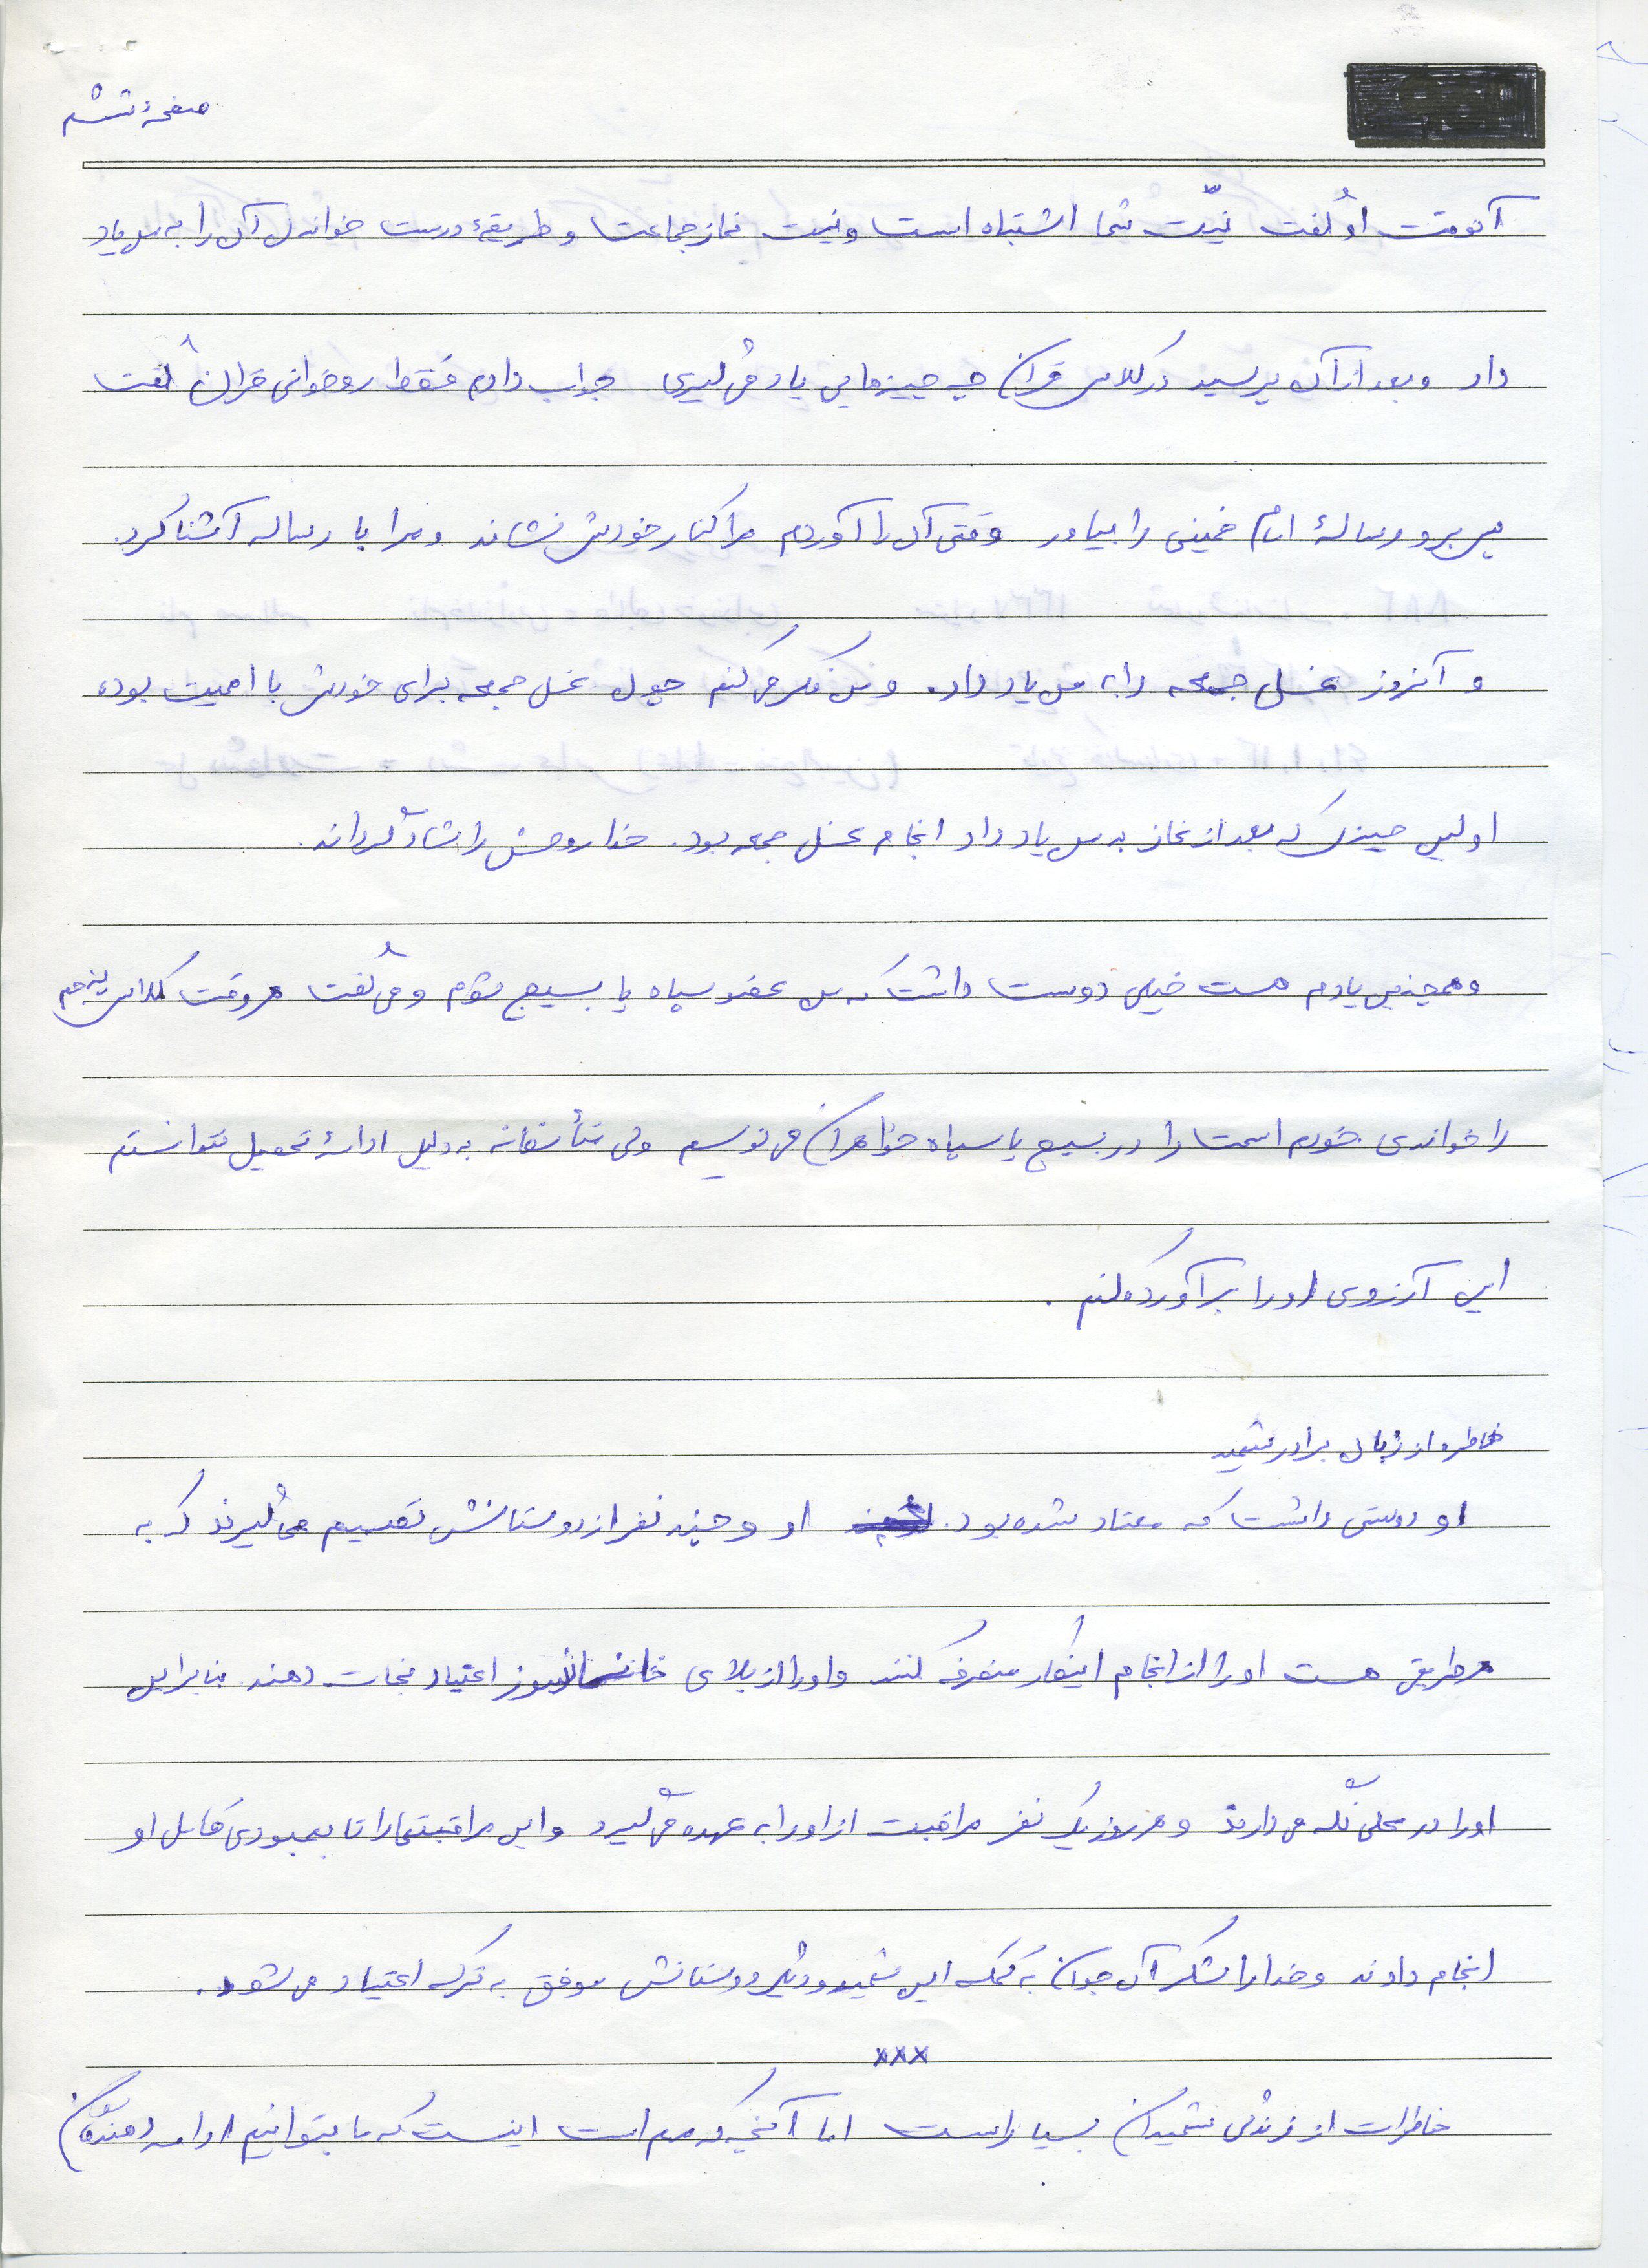 صفحهٔ ششم
آنوقت او گفت نیّت شما اشتباه است و نیت نماز جماعت و طریقهٔ درست خواندن آن را به من یاد
داد و بعد از آن پرسید در کلاس قرآن چه چیزهایی یاد می‌گیری جواب دادم فقط روخوانی قرآن گفت
پس برو رسالهٔ امام خمینی را بیاور وقتی آن را آوردم مرا کنار خودش نشاند و مرا با رساله آشنا کرد.
و آنروز غسل جمعه را به من یاد داد. و من فکر می کنم چون غسل جمعه برای خودش با اهمیت بوده
اولین چیزی که بعد از نماز به من یاد داد انجام غسل جمعه بود. خدا روحش را شاد گرداند.
و همچنین یادم هست خیلی دوست داشت که من عضو سپاه یا بسیج شوم و می گفت هر وقت کلاس پنجم
را خواندی خودم اسمت را در بسیج یا سپاه خواهران می نویسم ولی متأسفانه به دلیل ادامهٔ تحصیل نتوانستم
این آرزوی او را برآورده کنم.
خاطره از زبان برادر شهید
او دوستی داشت که معتاد شده بود. او و چند نفر از دوستانش تصمیم می گیرند که به
هر طریقی هست او را از انجام اینکار منصرف کنند و او را از بلای خانمانسوز اعتیاد نجات دهند. بنابراین
او را در محلی نگه می دارند و هر روز یک نفر مراقبت از او را به عهده می گیرد و این مراقبتها را تا بهبودی کامل او
انجام دادند و خدا را شکر آن جوان به کمک این شهید و دیگر دوستانش موفق به ترک اعتیاد می شود.
×××
خاطرات از زندگی شهیدان بسیار است اما آنچه که مهم است اینست که ما بتوانیم ادامه دهندگان